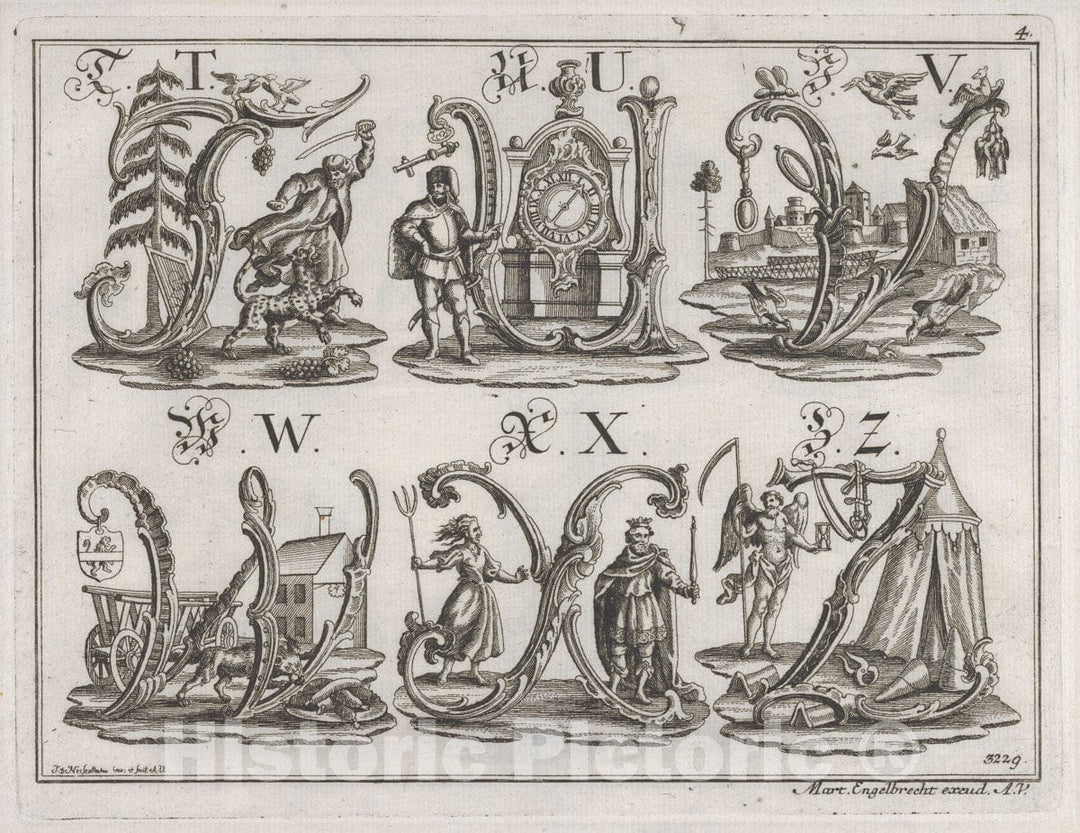 4.
T. T. U. U. V. V.
W. W. X. X. Z. Z.
Historic Pictoric ©
inv: et fecit A.V.
3229.
Mart. Engelbrecht excud. A.V.